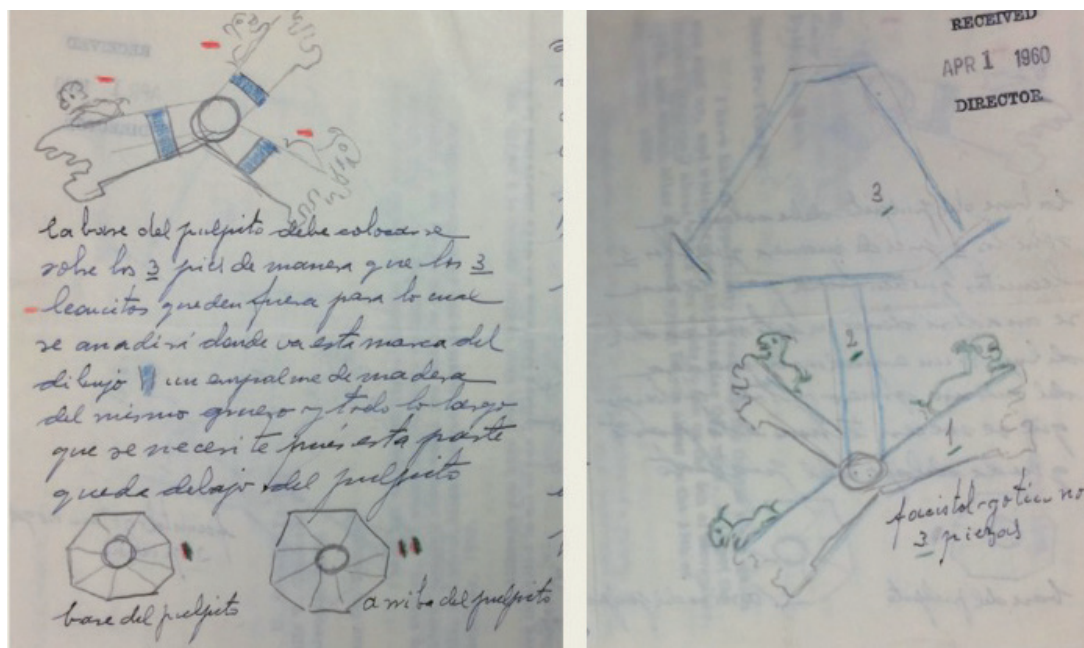 la base del pulpito debe colocarse
sobre los 3 pies de manera que los 3
leoncitos queden fuera para lo cual
se anadirá donde va esta marca del
dibujo un empalme de madera
del mismo grueso y todo lo largo
que se necesite pués esta parte
queda debajo del pulpito
base del pulpito
I
arriba del pulpito
II
RECEIVED
APR 1 1960
DIRECTOR
3
2
1
facistol-gótico no
3 piezas